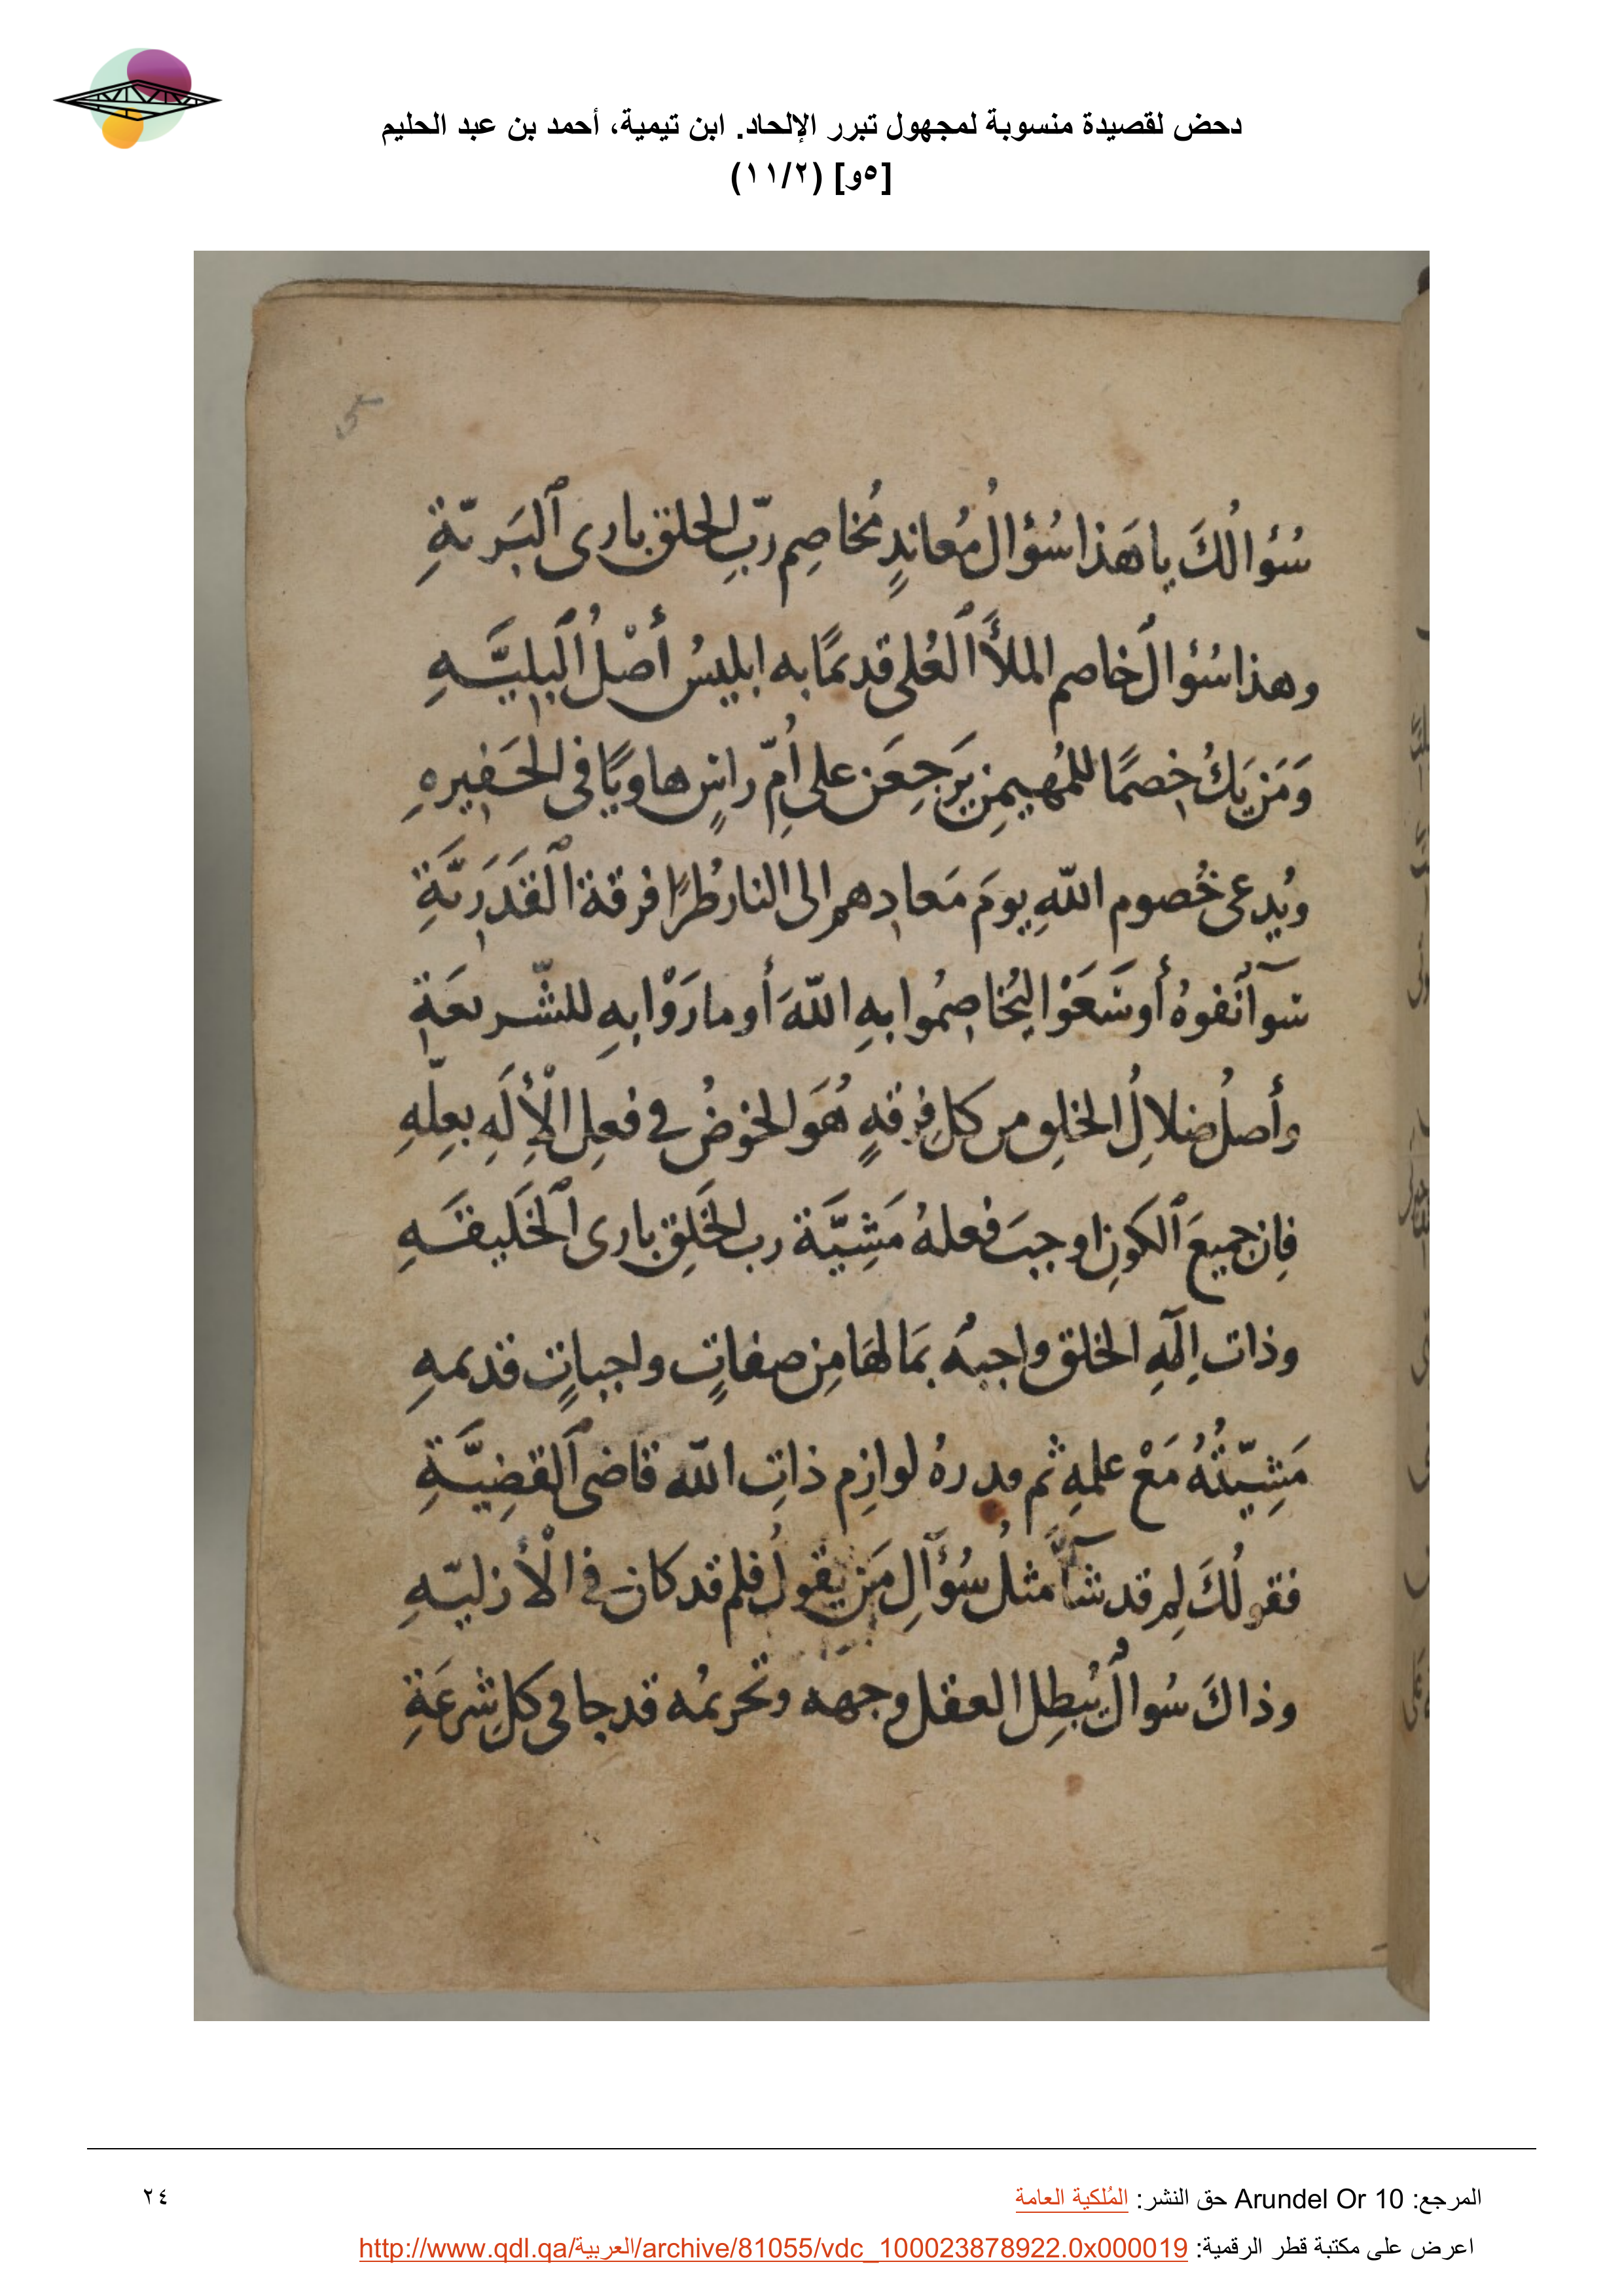 دحض لقصيدة منسوبة لمجهول تبرر الإلحاد. ابن تيمية، أحمد بن عبد الحليم
[٥و] (١١/٢)
5
سُؤالُكَ يا هَذا سُؤالُ مُعانِدٍ مُخاصِمِ ربِّ الخلق بارى ٱلبَريّةِ
وهذا سُؤالٌ خاصم الملأَ ٱلعُلى قديمًا به ابليسُ أصْلُ ٱلبليَّهِ
وَمَن يَكُ خصمًا للمُهيمِنِ يَرجِعَن على أُمِّ راسٍ هاويًا فى الحَفيرهِ
ويُدعى خُصوم اللهِ يومَ مَعادِهم الى النار طُرًا فرقة ٱلقَدَريَّةِ
سوآ نفوهُ أو سَعَوْا ليُخاصِمُوا بهِ اللهَ أو مارَوْا بهِ للشّريعَةِ
وأصلُ ضلالِ الخلِق من كلِ فِرقهٍ هُوَ الخوضُ في فعلِ الْأِلَهِ بعلّهِ
فإن جميعَ ٱلكونِ اوجبَ فعلهُ مَشِيَّة رب الخَلِق بارى ٱلخَليقَهِ
وذات إلهِ الخلق واجبهٌ بمَا لهَا مِن صفاتٍ واجباتٍ قديمهِ
مَشِيّتُهُ مَعْ علمهِ ثم قدرهُ لوازِم ذاتِ الله قاضى ٱلقضِيَّةِ
فقولُكَ لِم قد شآَ مثلُ سُؤآلِ مَن يقولُ فلم قد كان في الْأزليّهِ
وذاكَ سُوالٌ يُبطِل العقل وجهه وتحريمُه قد جا فى كلِ شرعَةِ
المرجع: Arundel Or 10 حق النشر: المُلكية العامة
٢٤
اعرض على مكتبة قطر الرقمية: http://www.qdl.qa/العربية/archive/81055/vdc_100023878922.0x000019